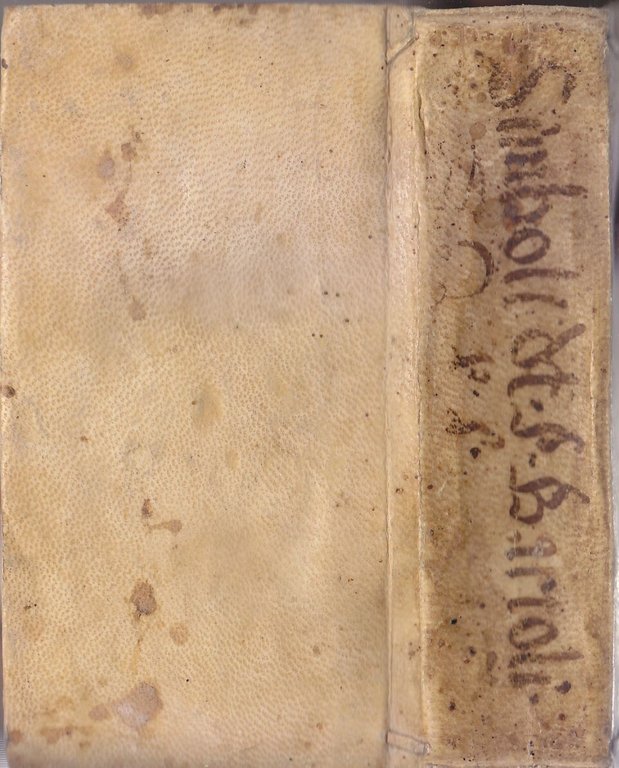 Simboli del P. Bartoli.